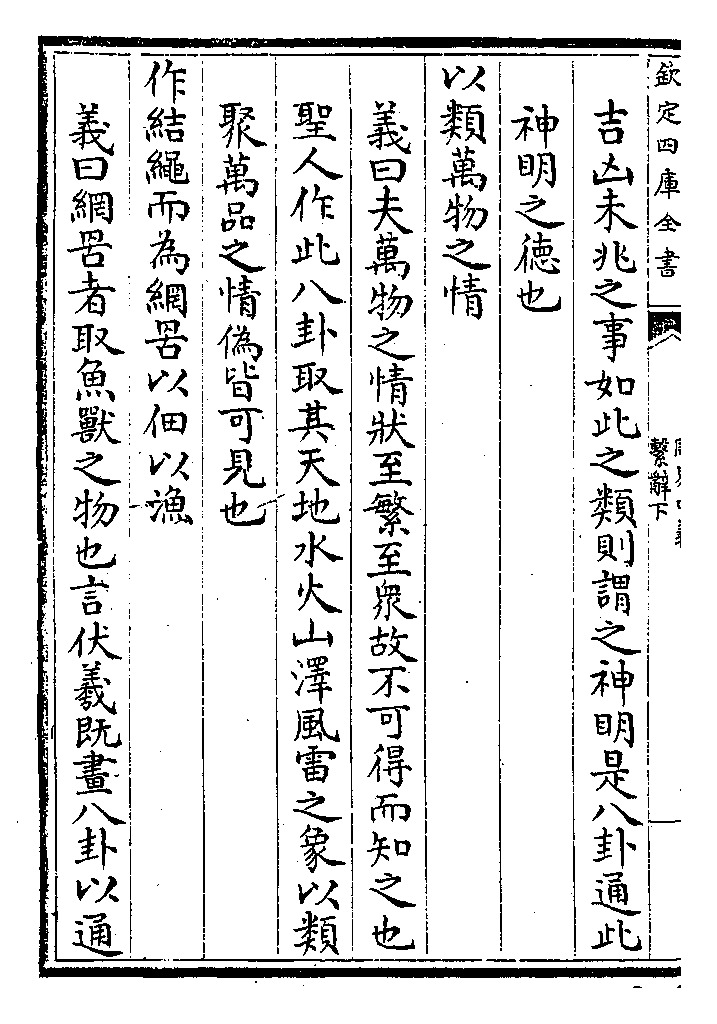 欽定四庫全書
繫辭下
吉凶未兆之事如此之類則謂之神明是八卦通此
神明之德也
以類萬物之情
義曰夫萬物之情狀至繁至衆故不可得而知之也
聖人作此八卦取其天地水火山澤風雷之象以類
聚萬品之情偽皆可見也
作結繩而為網罟以佃以漁
義曰網罟者取魚獸之物也言伏羲既畫八卦以通